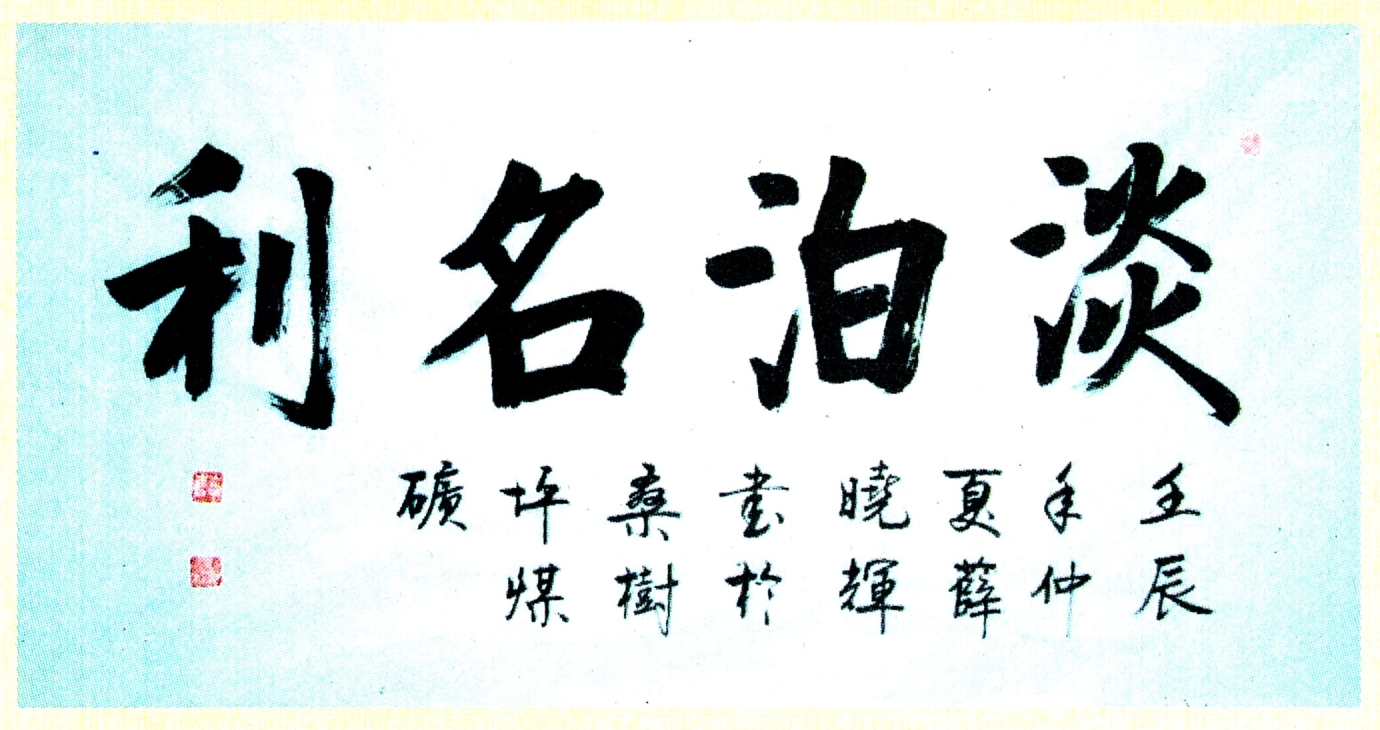 淡泊名利
壬辰
年仲
夏薛
曉輝
書於
桑樹
坪煤
礦